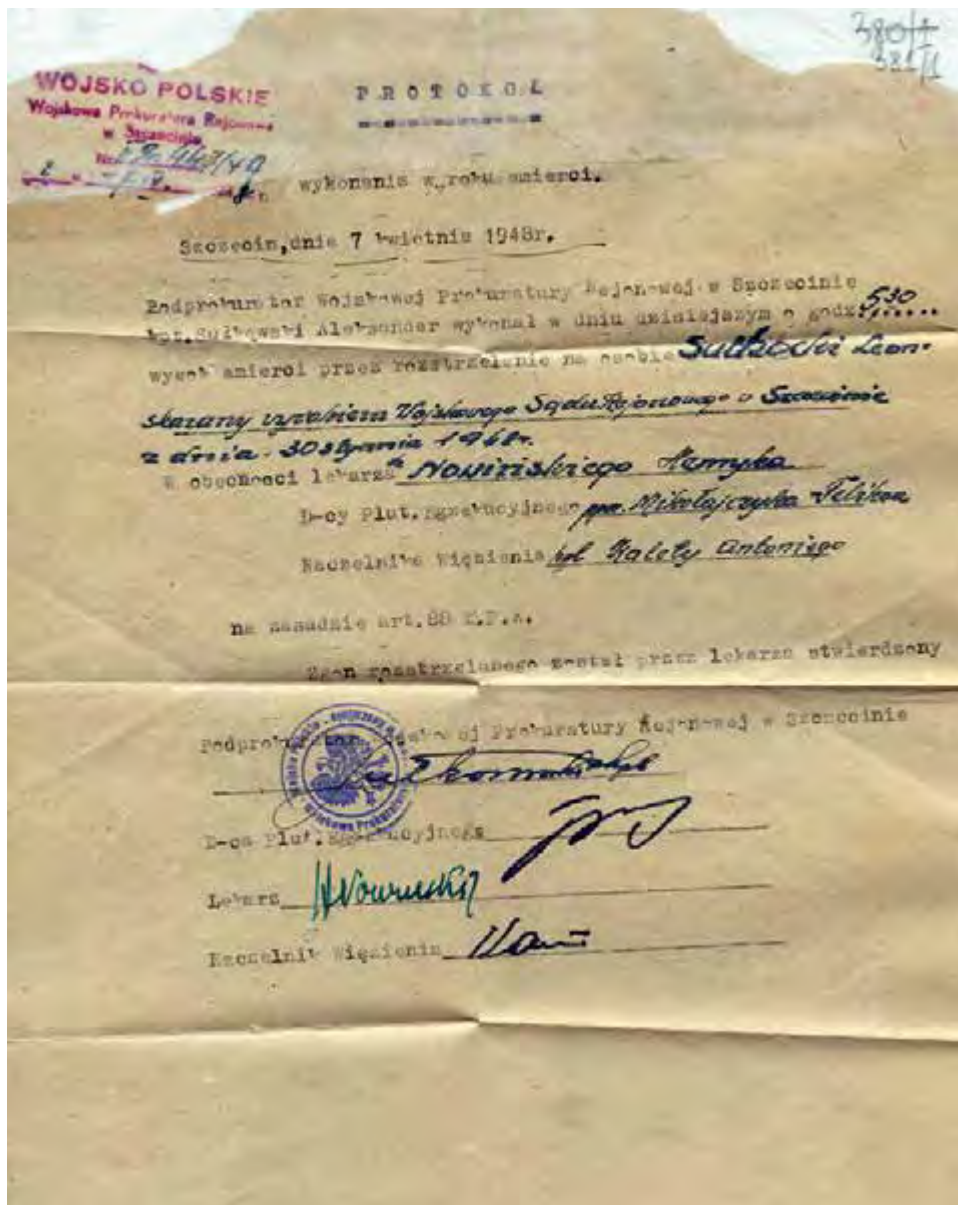 380/1
381/1
WOJSKO POLSKIE
Wojskowa Prokuratura Rejonowa
w Szczecinie
Nr
PROTOKÓŁ
wykonania wyroku śmierci.
Szczecin, dnia 7 kwietnia 1948r.
Podprokurator Wojskowej Prokuratury Rejonowej w Szczecinie
kpt. Sułkowski Aleksander wykonał w dniu dzisiejszym o godz. 5,30
wyrok śmierci przez rozstrzelanie na osobie Leon
skazany wyrokiem Wojskowego Sądu Rejonowego w Szczecinie
z dnia 30 stycznia 1948r.
W obecności lekarza Nowińskiego Henryka
D-cy Plut. Egzekucyjnego ppor. Mikołajczyka Feliksa
Naczelnika Więzienia Kalety Antoniego
na zasadzie art. 88
Zgon rozstrzelanego został przez lekarza stwierdzony
Podprokurator Wojskowej Prokuratury Rejonowej w Szczecinie
D-ca Plut. Egzekucyjnego
Lekarz HNowiński
Naczelnik Więzienia